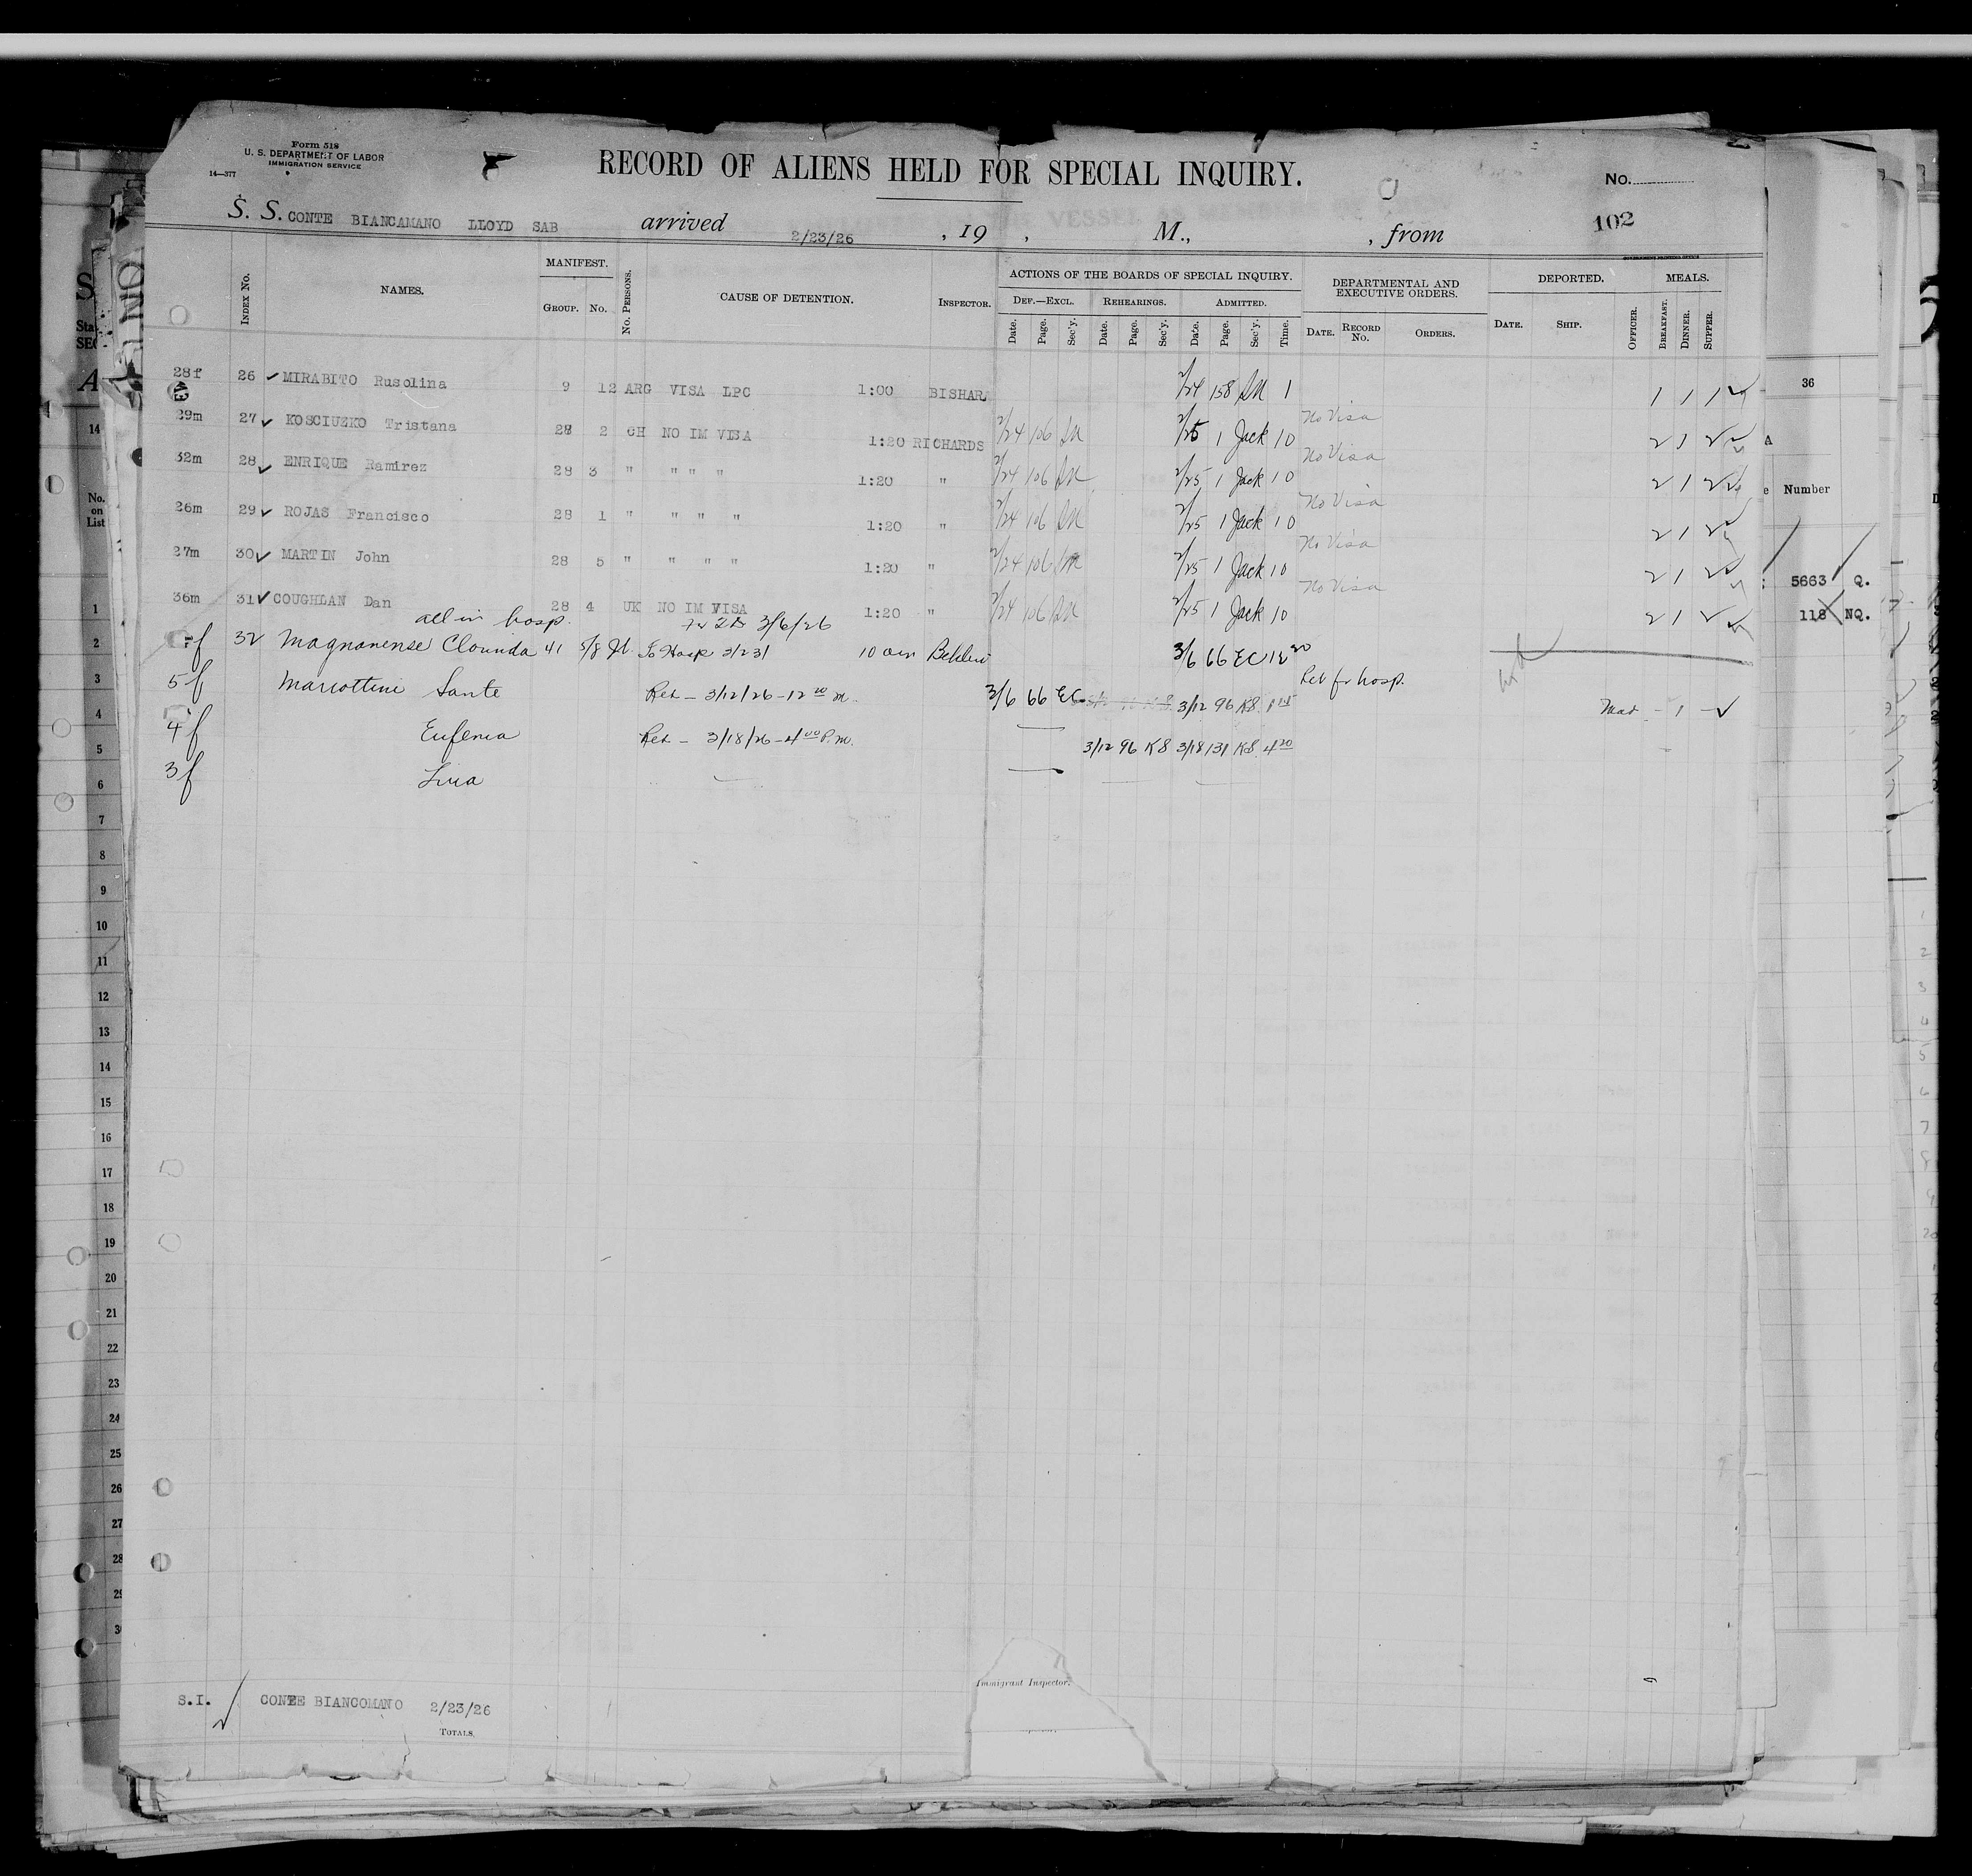 Form 518
U. S. DEPARTMENT OF LABOR
IMMIGRATION SERVICE
14—377
RECORD OF ALIENS HELD FOR SPECIAL INQUIRY.
No.
102
S. S. CONTE BIANCAMANO LLOYD SAB arrived 2/23/26 , 19 , M., , from
INDEX No. NAMES. MANIFEST. GROUP. No. No. PERSONS. CAUSE OF DETENTION. INSPECTOR. ACTIONS OF THE BOARDS OF SPECIAL INQUIRY. DEPARTMENTAL AND EXECUTIVE ORDERS. DEPORTED. MEALS.
DEF.—EXCL. REHEARINGS. ADMITTED.
Date. Page. Sec'y. Date. Page. Sec'y. Date. Page. Sec'y. Time. DATE. RECORD No. ORDERS. DATE. SHIP. OFFICER. BREAKFAST. DINNER. SUPPER.
28f 26 ✓ MIRABITO Rusolina 9 12 ARG VISA LPC 1:00 BISHARA 2/24 158 1 1 1 1
29m 27 ✓ KOSCIUZKO Tristana 28 2 CH NO IM VISA 1:20 RICHARDS 2/24 106 2/25 1 Jack 10 No Visa 2 1 2
32m 28 ✓ ENRIQUE Ramirez 28 3 " " " " 1:20 " 2/24 106 2/25 1 Jack 10 No Visa 2 1 2
26m 29 ✓ ROJAS Francisco 28 1 " " " " 1:20 " 2/24 106 2/25 1 Jack 10 No Visa 2 1 2
27m 30 ✓ MARTIN John 28 5 " " " " 1:20 " 2/24 106 2/25 1 Jack 10 No Visa 2 1 2
36m 31 ✓ COUGHLAN Dan 28 4 UK NO IM VISA 1:20 " 2/24 106 2/25 1 Jack 10 No Visa 2 1 2
all in hosp. 3/6/26
f 32 Magnanense Clorinda 41 5/8 To Hosp 10 am 3/6 66 EC 12
5f Mariottini Sante Reh – 3/12/26 – 12 m. 3/6 66 EC 3/12 96 KS Reh fr hosp. – 1 –
4f Eufenia Reh – 3/18/26 – 4 00 P.m. 3/12 96 KS 3/18 131 KS 4 20
3f Liria
S.I. ✓ CONTE BIANCOMANO 2/23/26
TOTALS.
Immigrant Inspector.
14
No. on List
1
2
3
4
5
6
7
8
9
10
11
12
13
14
15
16
17
18
19
20
21
22
23
24
25
26
27
28
29
36
Number
5663 Q.
118 NQ.